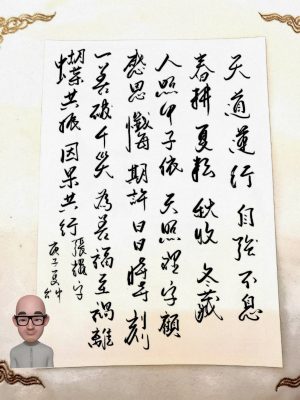 天道運行自強不息
春耕夏耘秋收冬藏
人照甲子依天照理字顧
感恩懺悔期許日日時時刻
一善破千災為善福至禍離
蝴蝶共振因果共行張 字
庚子夏